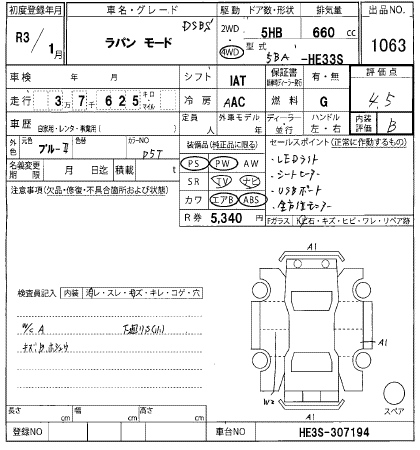 初度登録年月 車名・グレード 駆動 ドア数・形状 排気量 出品NO
R3 1月 ラパン モード DSBS 2WD 4WD 5HB 660 cc 1063
型式 5BA-HE33S
車検 年 月 シフト IAT 保証書 有・無 評価点
走行 3万7千625 キロ マイル 冷房 AAC 燃料 G 4.5
車歴 自家用・レンタ・事業用( ) 定員 人 外車モデル 年 ディーラー・並行 ハンドル 左・右 内装評価 B
外色 元色 ブルーII 色替 カラーNO 装備品(純正品に限る) セールスポイント(正常に作動するもの)
名義変更期限 月 日迄 積載 t PS PW AW ・LEDライト
注意事項(欠品・修復・不具合箇所および状態) SR TV ナビ ・シートヒーター
カワ エアB ABS ・USBポート
R券 5,340 円 Fガラス 飛石・キズ・ヒビ・ワレ・リペア跡
A1
検査員記入 内装 汚レ・スレ・キズ・キレ・コゲ・穴
W/C A
A1
W2
A1
スペア
長さ cm 幅 cm 高さ cm
登録NO 車台NO HE3S-307194